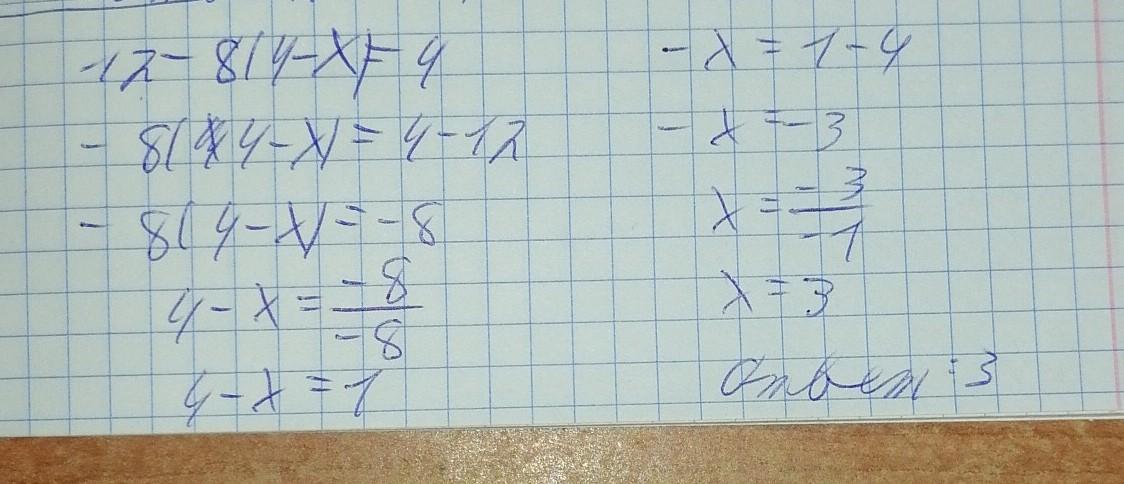 12 - 8(4-x) = 4
- 8(4-x) = 4-12
- 8(4-x) = -8
4-x = -8/-8
4-x = 1
-x = 1-4
-x = -3
x = -3/-1
x = 3
Ответ: 3